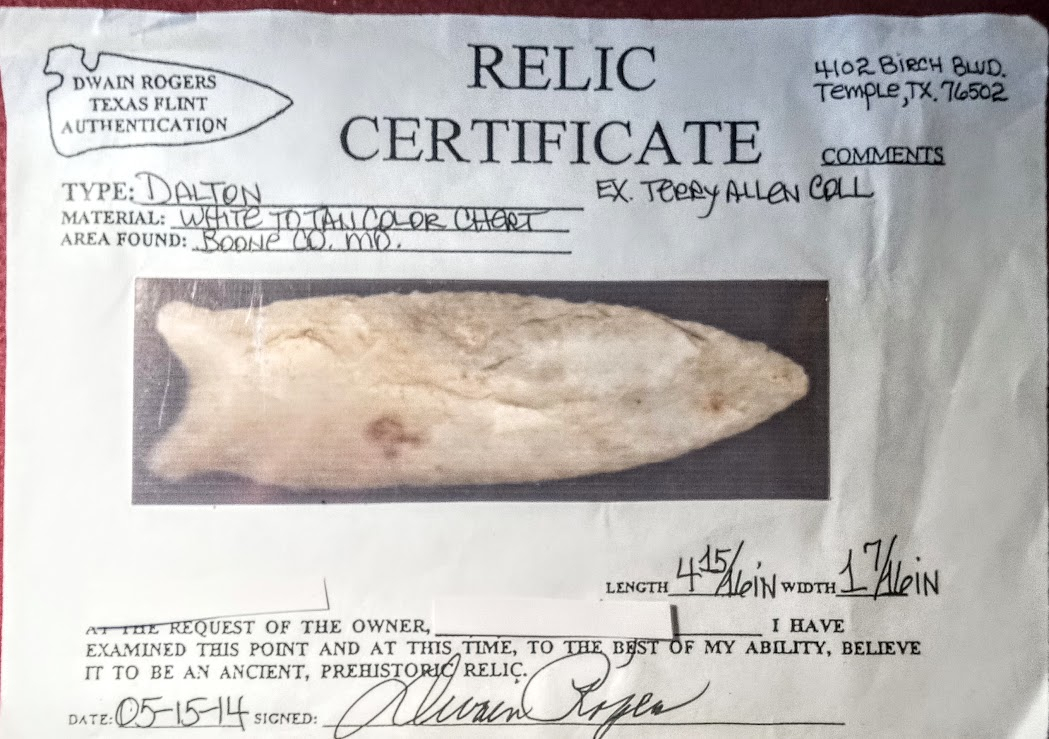 DWAIN ROGERS
TEXAS FLINT
AUTHENTICATION
RELIC
CERTIFICATE
4102 BIRCH BLVD.
Temple, TX. 76502
COMMENTS
EX. TERRY ALLEN COLL
TYPE: DALTON
MATERIAL: WHITE TO TAN COLOR CHERT
AREA FOUND: BOONE CO. MO.
LENGTH 4 15/16 iN WIDTH 1 7/16 iN
AT THE REQUEST OF THE OWNER, I HAVE
EXAMINED THIS POINT AND AT THIS TIME, TO THE BEST OF MY ABILITY, BELIEVE
IT TO BE AN ANCIENT, PREHISTORIC RELIC.
DATE: 05-15-14 SIGNED: Dwain Rogers